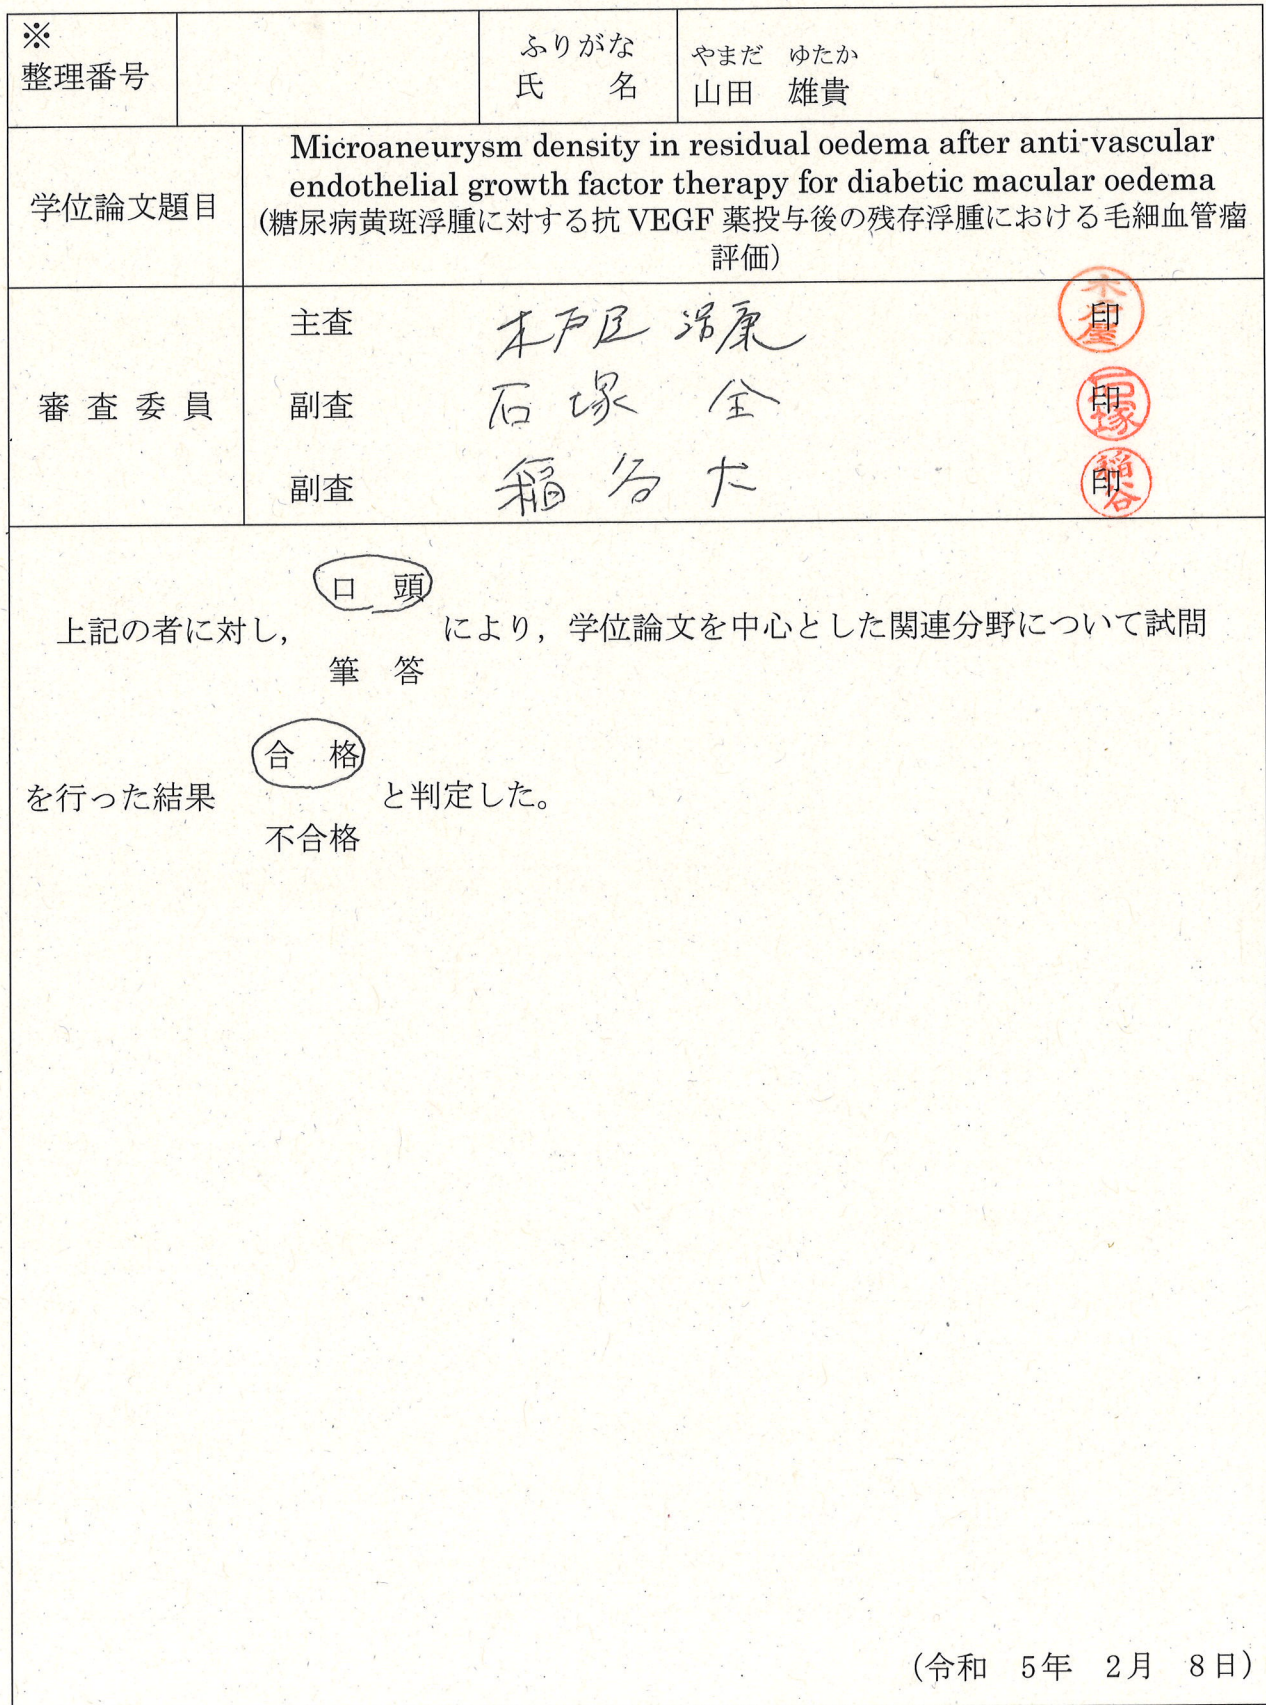 ※
整理番号
ふりがな
氏　　名
やまだ　ゆたか
山田　雄貴
学位論文題目
Microaneurysm density in residual oedema after anti-vascular
endothelial growth factor therapy for diabetic macular oedema
(糖尿病黄斑浮腫に対する抗 VEGF 薬投与後の残存浮腫における毛細血管瘤
評価)
審査委員
主査　木戸屋 浩康　印
副査　石塚　全　印
副査　稲谷 大　印
口　頭
上記の者に対し，　により，学位論文を中心とした関連分野について試問
筆　答
合　格
を行った結果　と判定した。
不合格
(令和　5年　2月　8日)